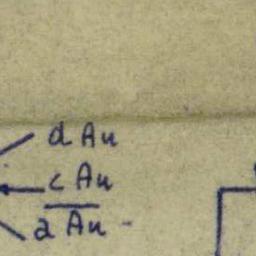 d Au
c Au
a Au -